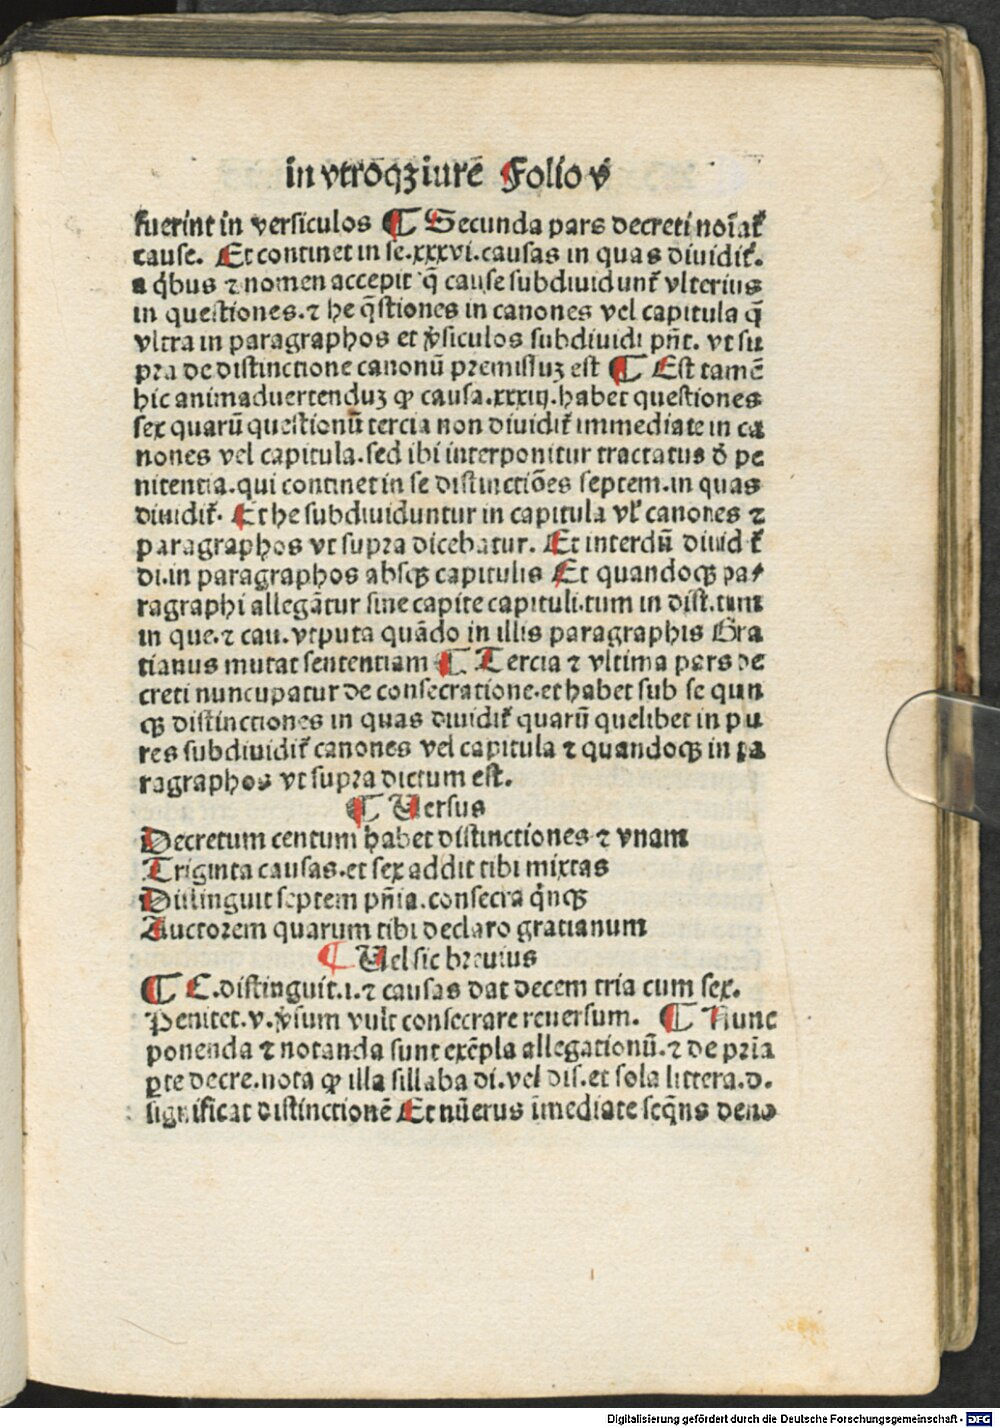 in vtroqʒ iurē Folio v
fuerint in versiculos ¶ Secunda pars decreti noīat᷑
cause. Et continet in se .xxxvi. causas in quas diuidit᷑.
a q̇bus ⁊ nomen accepit q̄ cause subdiuidunt᷑ vlterius
in questiones. ⁊ he q̄stiones in canones vel capitula q̄
vltra in paragraphos et v̓siculos subdiuidi pn̄t. vt su
pra de distinctione canonū premissuʒ est ¶ Est tamē
hic animaduertenduʒ ꝙ causa .xxxiij. habet questiones
sex quarū questionū tercia non diuidit᷑ immediate in ca
nones vel capitula. sed ibi interponitur tractatus d̓ pe
nitentia. qui continet in se distinctiōes septem. in quas
diuidit᷑. Et he subdiuiduntur in capitula vl᷑ canones ⁊
paragraphos vt supra dicebatur. Et interdū diuidit᷑
di. in paragraphos absqꝫ capitulis Et quandoqꝫ pa⸗
ragraphi allegātur sine capite capituli. tum in dist. tum
in que. ⁊ cau. vtputa quādo in illis paragraphis Gra
tianus mutat sententiam ¶ Tercia ⁊ vltima pars de
creti nuncupatur de consecratione. et habet sub se quin
qꝫ distinctiones in quas diuidit᷑ quarū quelibet in plu
res subdiuidit᷑ canones vel capitula ⁊ quandoqꝫ in pa
ragraphos vt supra dictum est.
¶ Versus
Decretum centum habet distinctiones ⁊ vnam
Triginta causas. et sex addit tibi mixtas
Distinguit septem pn̄ia. consecra q̇nqꝫ
Auctorem quarum tibi declaro gratianum
¶ Vel sic breuius
¶ C. distinguit .i. ⁊ causas dat decem tria cum sex.
Penitet .v. v̓sum vult consecrare reuersum. ¶ Nunc
ponenda ⁊ notanda sunt exēpla allegationū. ⁊ de pria
ꝑte decre. nota ꝙ illa sillaba di. vel dis. et sola littera .d.
significat distinctionē Et nūerus īmediate seq̄ns deno
Digitalisierung gefördert durch die Deutsche Forschungsgemeinschaft - DFG